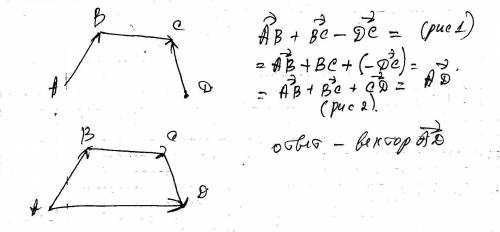 B C
A D
B C
A D
AB + BC − DC = (рис 1)
= AB + BC + (−DC) =
= AB + BC + CD = AD.
(рис 2).
ответ – вектор AD